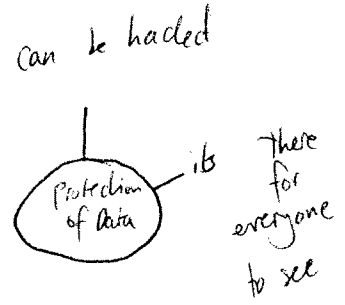 can be hacked
Protection
of Data
its
There
for
everyone
to see